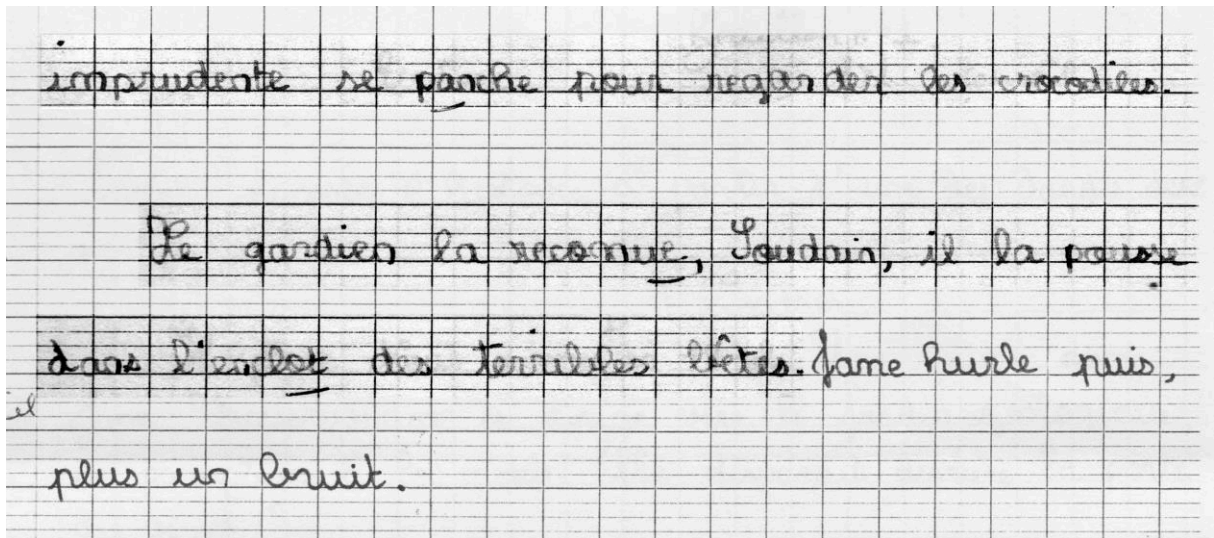 imprudente se panche pour regarder les crocodiles.
Le gardien la reconnue, Soudain, il la pousse
dans l'enclot des terribles bêtes. Jane hurle puis,
il
plus un bruit.